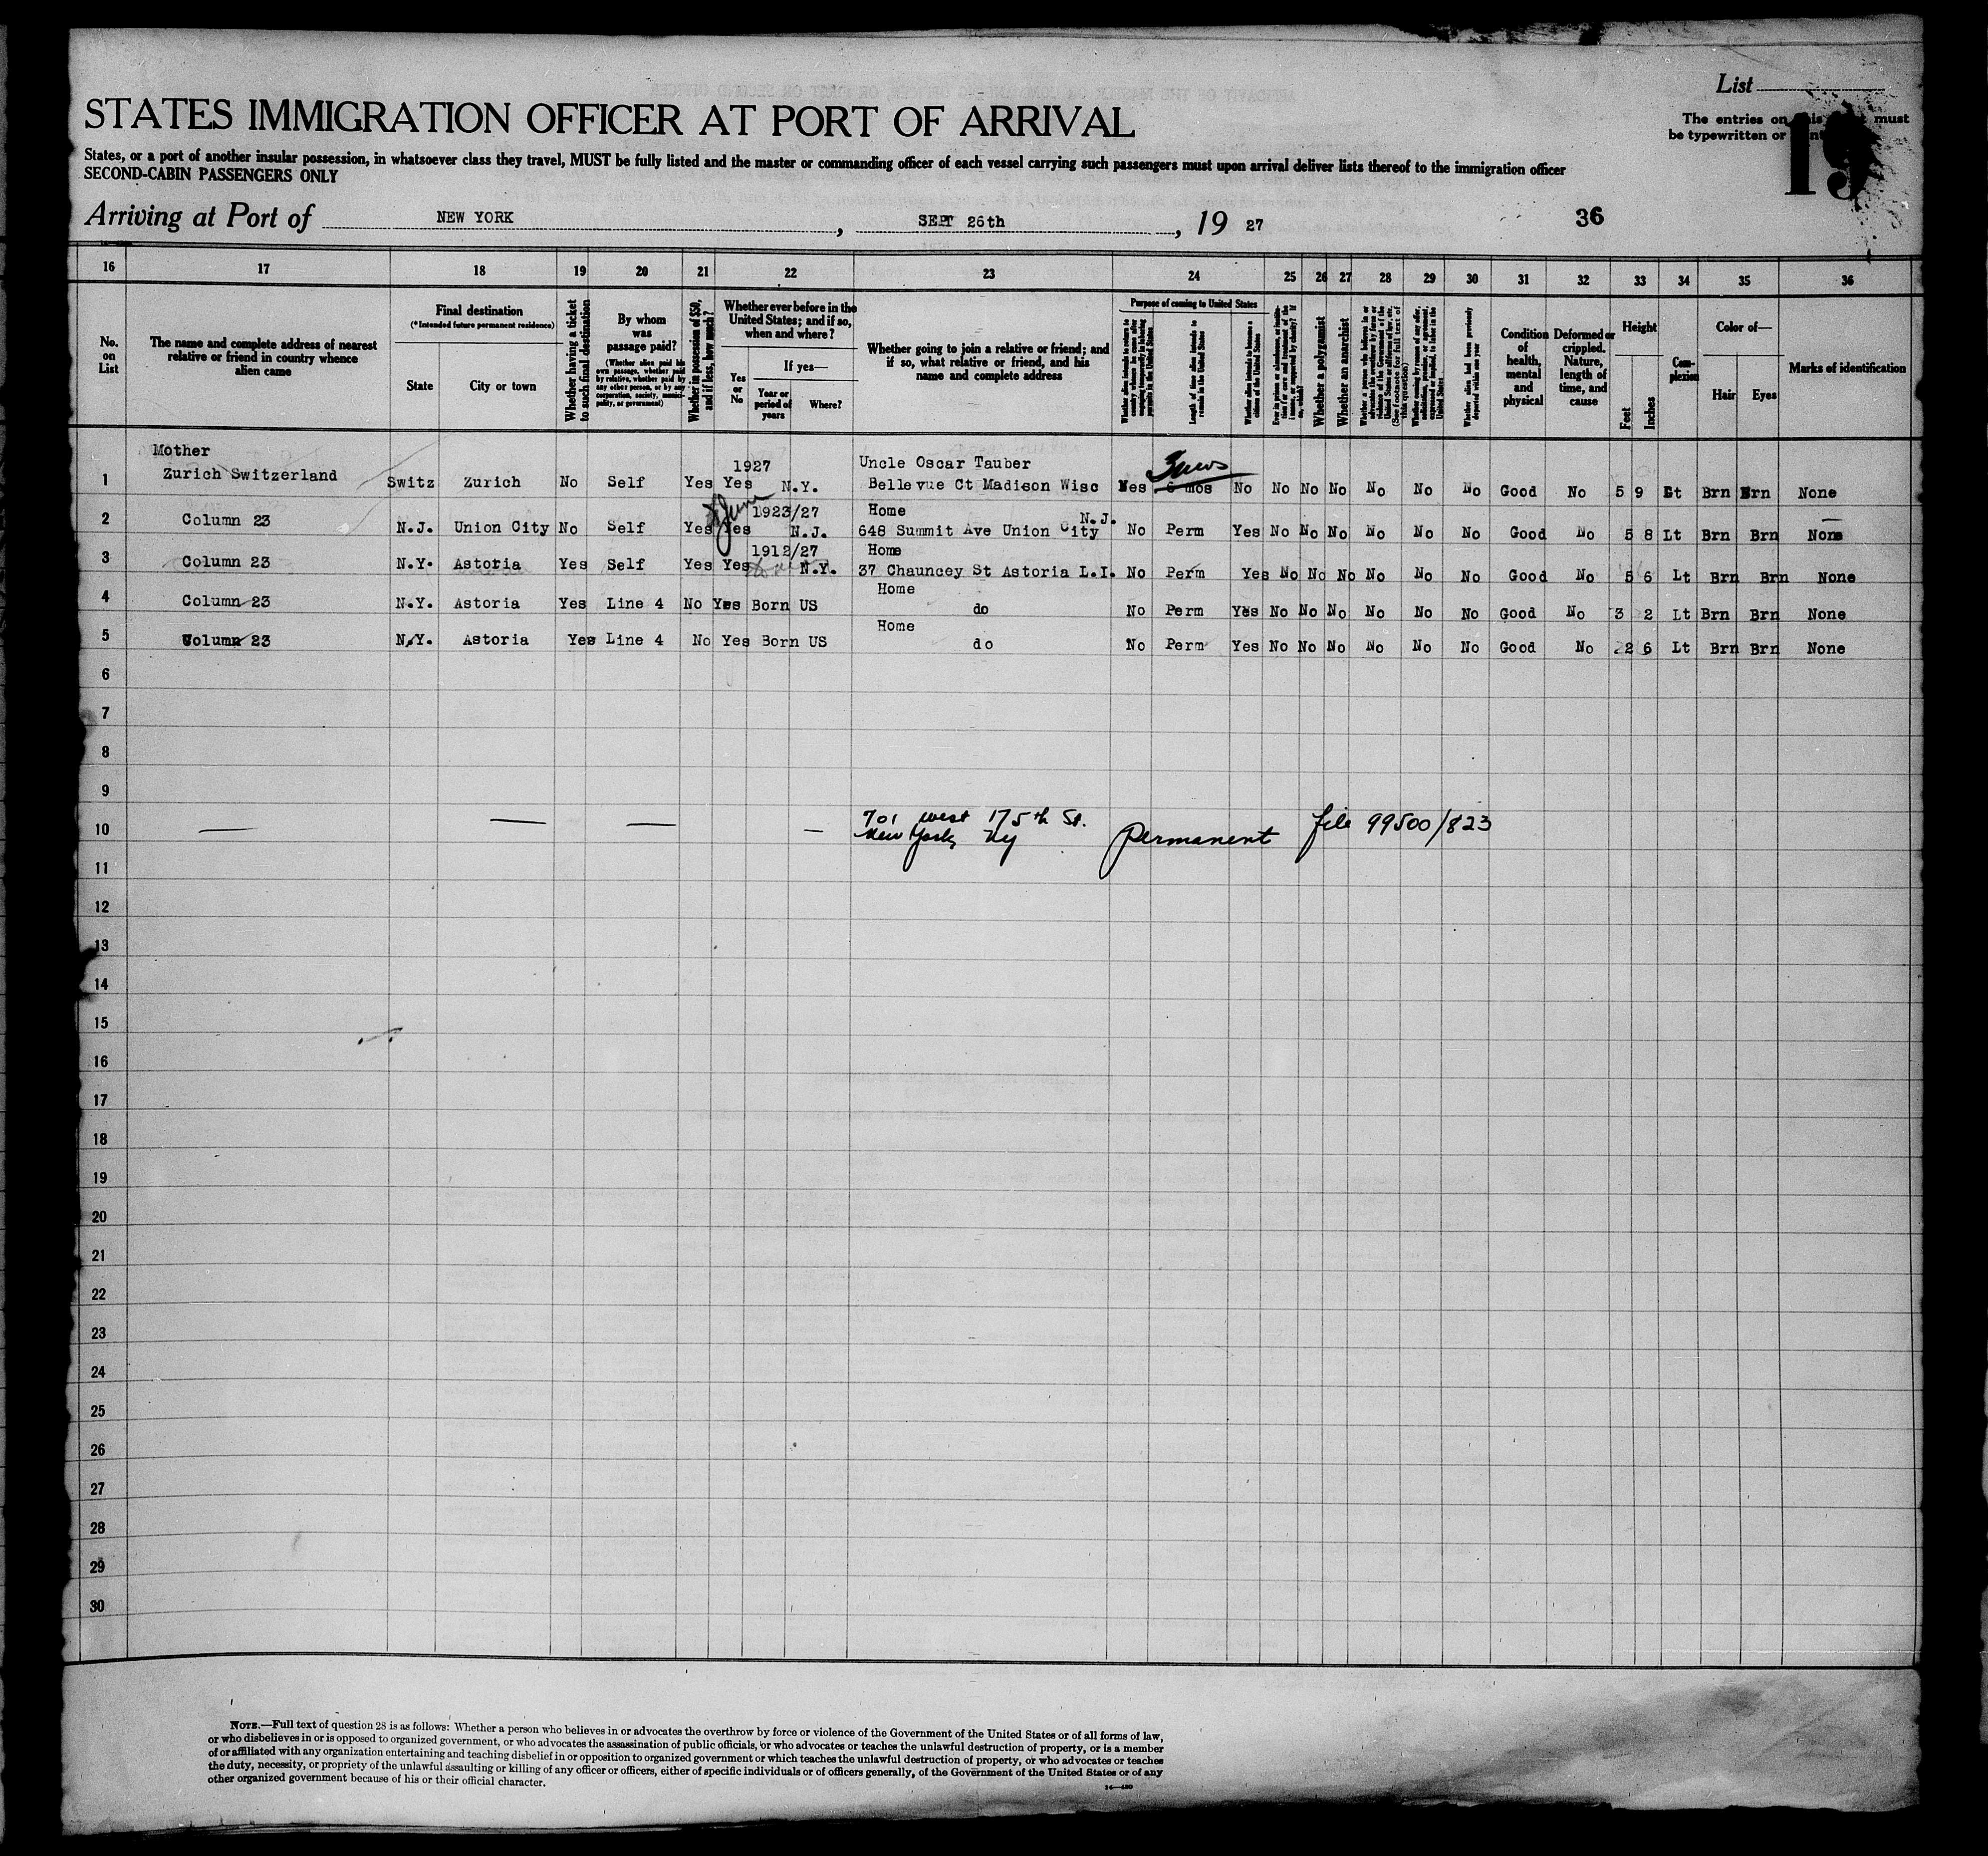 List
STATES IMMIGRATION OFFICER AT PORT OF ARRIVAL
The entries on this must
be typewritten or
19
States, or a port of another insular possession, in whatsoever class they travel, MUST be fully listed and the master or commanding officer of each vessel carrying such passengers must upon arrival deliver lists thereof to the immigration officer
SECOND-CABIN PASSENGERS ONLY
Arriving at Port of NEW YORK , SEPT 26th , 19 27
36
16 17 18 19 20 21 22 23 24 25 26 27 28 29 30 31 32 33 34 35 36
No. on List
The name and complete address of nearest relative or friend in country whence alien came
Final destination
(*Intended future permanent residence)
State
City or town
Whether having a ticket to such final destination
By whom was passage paid?
(Whether alien paid his own passage, whether paid by relative, whether paid by any other person, or by any corporation, society, municipality, or government)
Whether in possession of $50, and if less, how much?
Whether ever before in the United States; and if so, when and where?
Yes or No
If yes—
Year or period of years
Where?
Whether going to join a relative or friend; and if so, what relative or friend, and his name and complete address
Purpose of coming to United States
Length of time alien intends to remain in the United States
Whether alien intends to become a citizen of the United States
Whether a polygamist
Whether an anarchist
Whether alien had been previously deported within one year
Condition of health, mental and physical
Deformed or crippled. Nature, length of time, and cause
Height
Feet
Inches
Complexion
Color of—
Hair
Eyes
Marks of identification
Mother 1927 Uncle Oscar Tauber
1 Zurich Switzerland Switz Zurich No Self Yes Yes N.Y. Bellevue Ct Madison Wisc Yes 6 mos No No No No No No No Good No 5 9 Lt Brn Brn None
June 1923/27 Home
2 Column 23 N.J. Union City No Self Yes Yes N.J. 648 Summit Ave Union City N.J. No Perm Yes No No No No No No Good No 5 8 Lt Brn Brn None
1912/27 Home
3 Column 23 N.Y. Astoria Yes Self Yes Yes N.Y. 37 Chauncey St Astoria L.I. No Perm Yes No No No No No No Good No 5 6 Lt Brn Brn None
Home
4 Column 23 N.Y. Astoria Yes Line 4 No Yes Born US do No Perm Yes No No No No No No Good No 3 2 Lt Brn Brn None
Home
5 Column 23 N.Y. Astoria Yes Line 4 No Yes Born US do No Perm Yes No No No No No No Good No 2 6 Lt Brn Brn None
6
7
8
9
10 — — — — 701 west 175th St. New York Ny permanent file 99500/823
11
12
13
14
15
16
17
18
19
20
21
22
23
24
25
26
27
28
29
30
NOTE.—Full text of question 28 is as follows: Whether a person who believes in or advocates the overthrow by force or violence of the Government of the United States or of all forms of law,
or who disbelieves in or is opposed to organized government, or who advocates the assassination of public officials, or who advocates or teaches the unlawful destruction of property, or is a member
of or affiliated with any organization entertaining and teaching disbelief in or opposition to organized government or which teaches the unlawful destruction of property, or who advocates or teaches
the duty, necessity, or propriety of the unlawful assaulting or killing of any officer or officers, either of specific individuals or of officers generally, of the Government of the United States or of any
other organized government because of his or their official character.